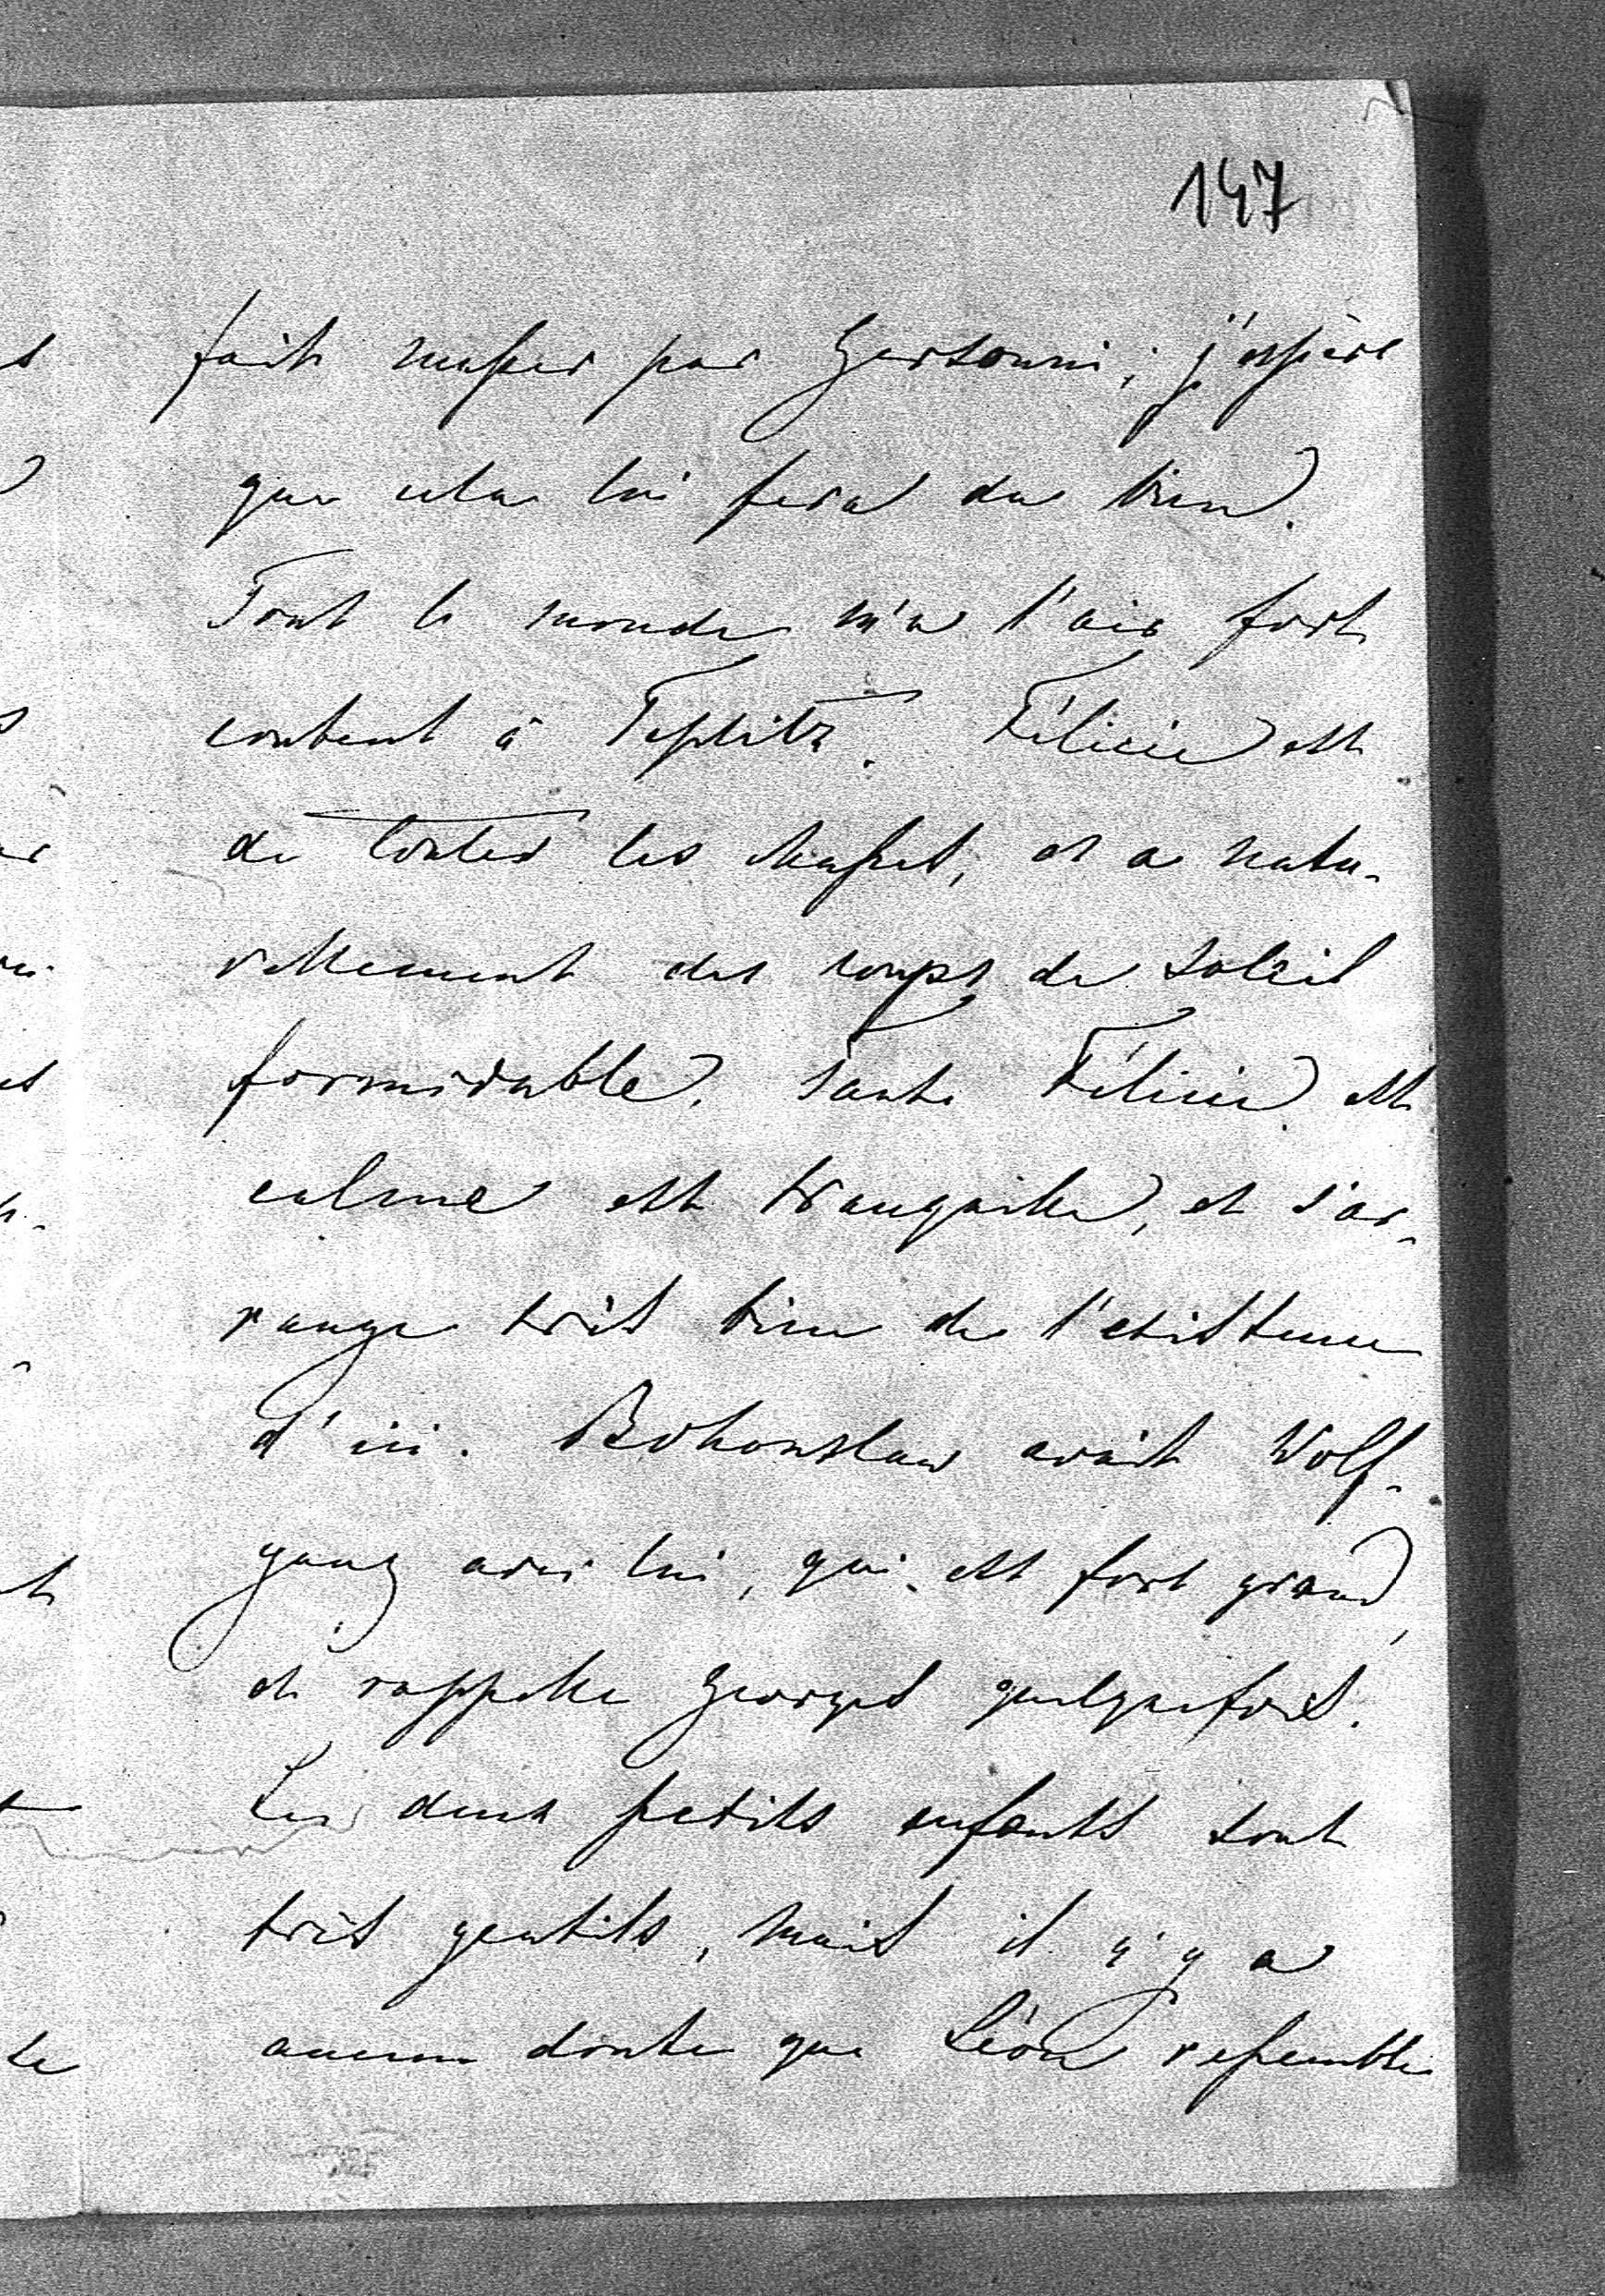 147
fait masser par Gersouni; j'espère
que cela lui fera du bien.
Tout le monde m'a l'air fort
content à Teplitz. Félicie est
de toutes les chasses, et a natu-
rellement des coups de soleil
formidable. Tante Félicie est
calme est tranquille, et s'ar-
range très bien de l'existence
d'ici. Bohouslaw avait Wolf-
gang avec lui, qui est fort grand,
et rappelle Georges quelquefois.
Les deux petits enfants sont
très gentils, mais il n'y a
aucun doute que Léon ressemble